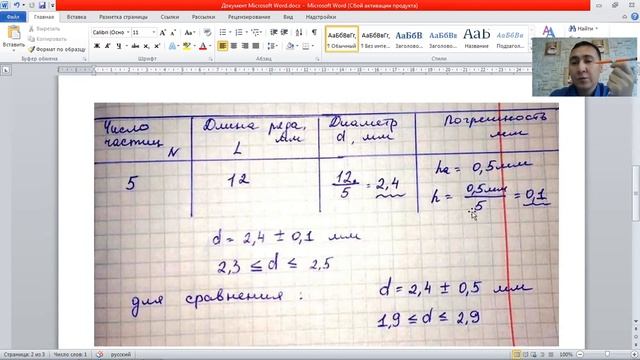 Документ Microsoft Word.docx - Microsoft Word (Сбой активации продукта)
Файл Главная Вставка Разметка страницы Ссылки Рассылки Рецензирование Вид Надстройки
Вставить
Вырезать
Копировать
Формат по образцу
Calibri (Осн 11
АаБбВвГг, АаБбВвГг, АаБбВ АаБбВв Aab АаБбВв
¶ Обычный ¶ Без инте... Заголово... Заголово... Название
Найти
Число частиц N
Длина ряда, мм L
Диаметр d, мм
Погрешность мм
5
12
12/5 = 2,4
hа = 0,5мм
h = 0,5мм/5 = 0,1
d = 2,4 ± 0,1 мм
2,3 ≤ d ≤ 2,5
для сравнения :
d = 2,4 ± 0,5 мм
1,9 ≤ d ≤ 2,9
Страница: 2 из 3 Число слов: 1 русский 100%